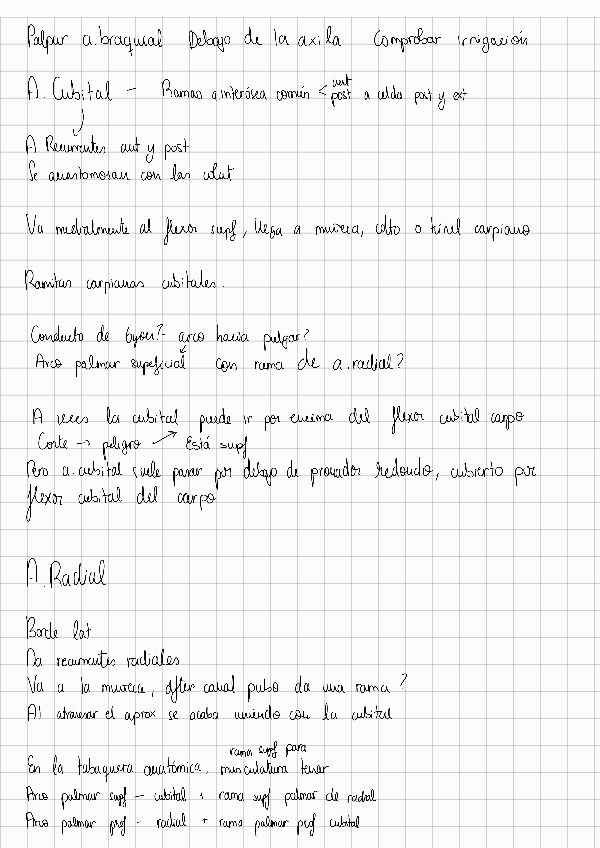 Palpar a.braquial Debajo de la axila Comprobar irrigación
A. Cubital - Ramas a interósea común < ant post a celda post y ext
A Recurrentes ant y post
Se anastomosan con las colat
Va medialmente al flexor supf, llega a muñeca, cdto o túnel carpiano
Ramitas carpianas cubitales.
Conducto de Guyon?- arco hacia pulgar?
Arco palmar supeficial con rama de a.radial?
A veces la cubital puede ir por encima del flexor cubital carpo
Corte -> peligro -> Está supf
Pero a.cubital suele pasar por debajo de pronador redondo, cubierto por
flexor cubital del carpo
A. Radial
Borde lat
Da recurrentes radiales
Va a la muñeca, after canal pulso da una rama?
Al atravesar el aprox se acaba uniendo con la cubital
rama supf para
En la tabaquera anatómica, musculatura tenar
Arco palmar supf - cubital + rama supf palmar de radial
Arco palmar prof - radial + rama palmar prof cubital